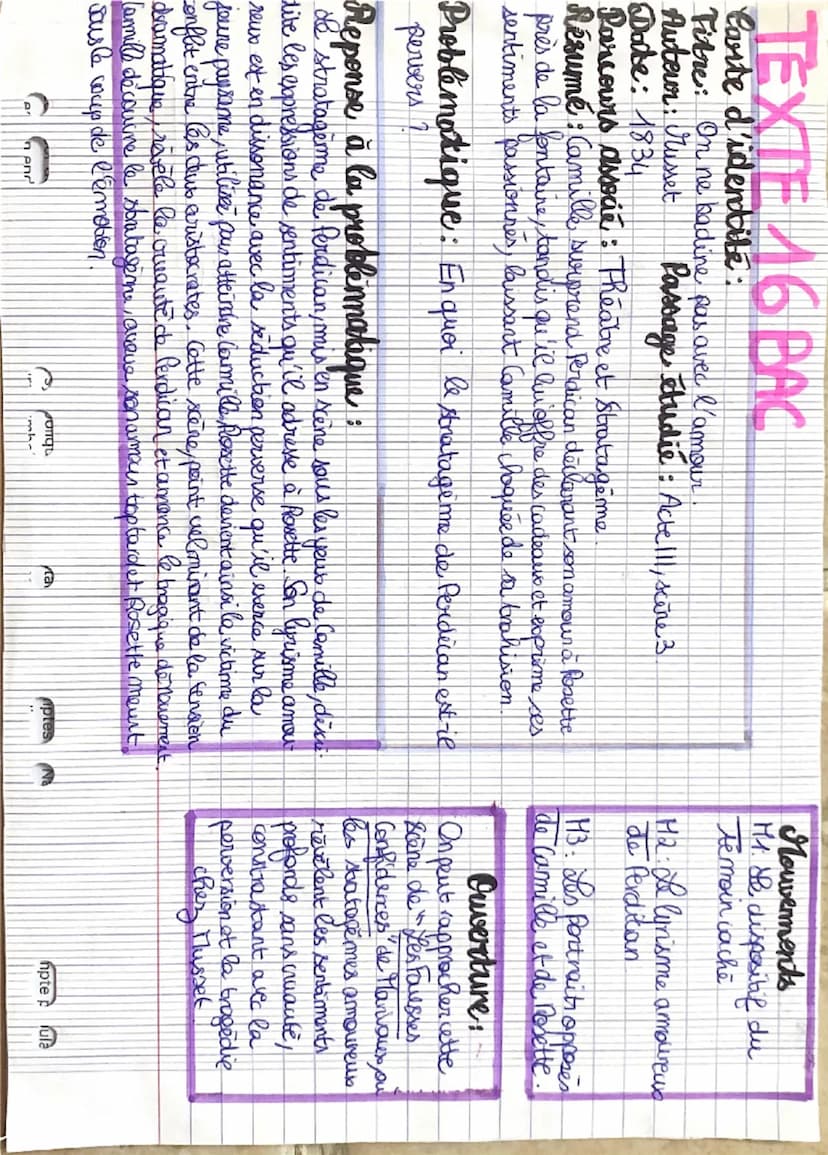 TEXTE 16 BAC
Carte d'identité :
Titre : On ne badine pas avec l'amour.
Auteur : Musset Passage étudié : Acte III, scène 3.
Date : 1834
Parcours associé : Théâtre et Stratagème.
Résumé : Camille surprend Perdican déclarant son amour à Rosette
près de la fontaine, tandis qu'il lui offre des cadeaux et exprime ses
sentiments passionnés, laissant Camille choquée de sa trahision.
Problématique : En quoi le stratagème de Perdican est-il
pervers ?
Réponse à la problématique :
Le stratagème de Perdican, mis en scène sous les yeux de Camille, décré-
dite les expressions de sentiments qu'il adresse à Rosette. Son lyrisme amou-
reux est en dissonance avec la séduction perverse qu'il exerce sur la
jeune paysanne, utilisée pour atteindre Camille. Rosette devient ainsi la victime du
conflit entre les deux aristocrates. Cette scène, point culminant de la tension
dramatique, révèle la cruauté de Perdican et annonce le tragique dénouement.
Camille découvre le stratagème, avoue son amour trop tard et Rosette meurt
sous le coup de l'émotion.
Mouvements
M1 : Le dispositif du
témoin caché
M2 : Le lyrisme amoureux
de Perdican
M3 : Les portraits opposés
de Camille et de Rosette.
Ouverture :
On peut rapprocher cette
scène de "Les Fausses
Confidences" de Marivaux, où
les stratagèmes amoureux
révèlent les sentiments
profonds sans cruauté,
contrastant avec la
perversion et la tragédie
chez Musset.